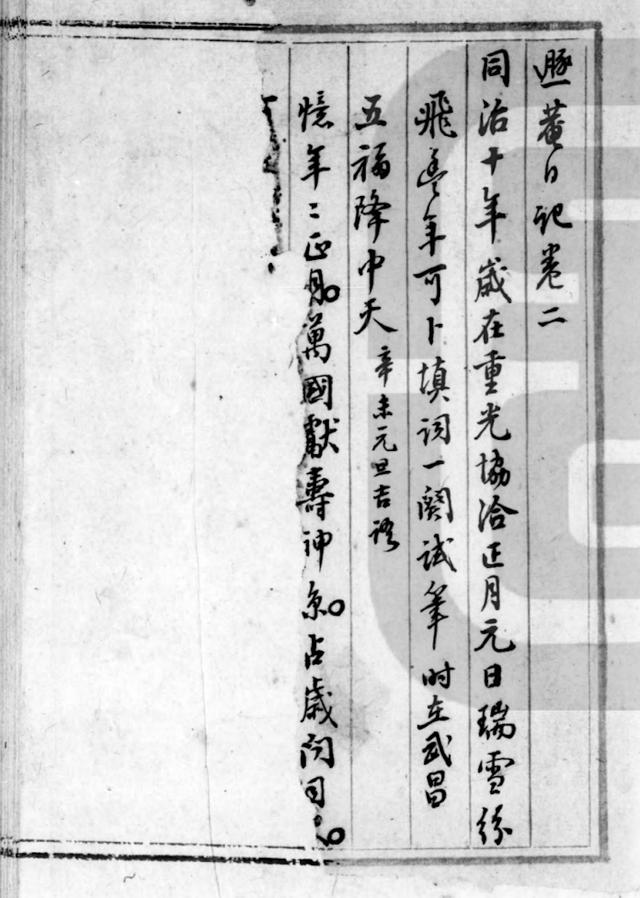 遯菴日記卷二
同治十年歲在重光協洽正月元日瑞雪紛
飛豐年可卜填詞一闋試筆時在武昌
五福降中天 辛未元旦吉語
憶年二正月萬國獻壽神京占歲問